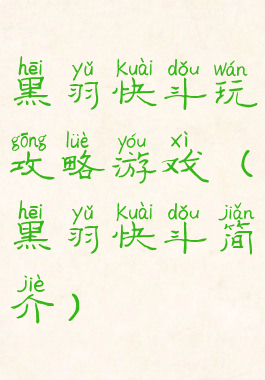 hēi yǔ kuài dǒu wán
黑羽快斗玩
gōng lüè yóu xì
攻略游戏（
hēi yǔ kuài dǒu jiǎn
黑羽快斗简
jiè
介）